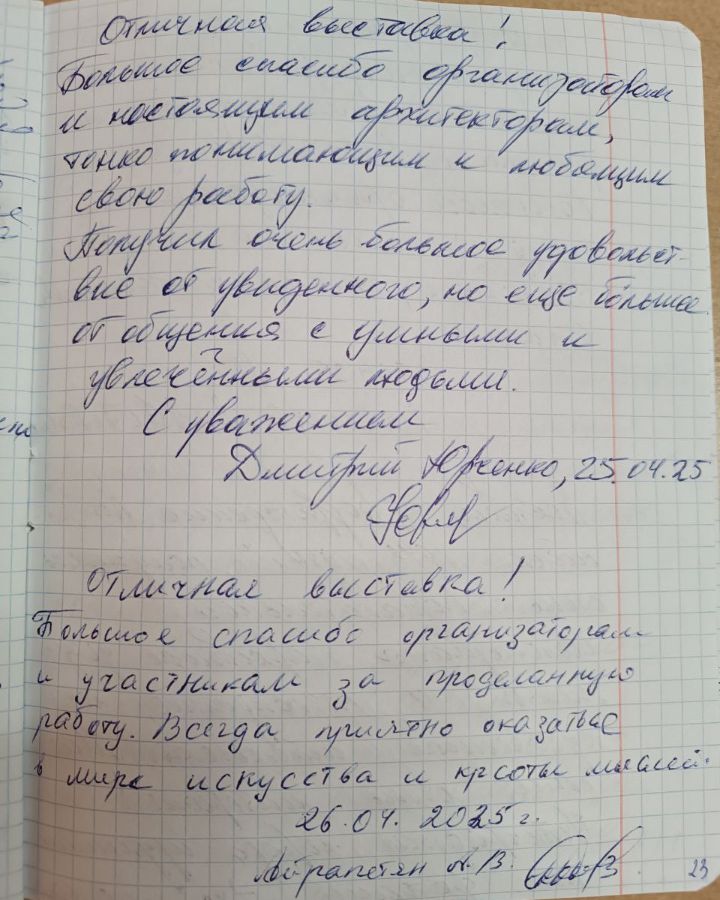 Отличная выставка!
Большое спасибо организаторам
и настоящим архитекторам,
тонко понимающим и любящим
свою работу.
Получил очень большое удовольст-
вие от увиденного, но еще большее
от общения с умными и
увлечёнными людьми.
С уважением
Дмитрий Юрченко, 25.04.25
Отличная выставка!
Большое спасибо организаторам
и участникам за проделанную
работу. Всегда приятно оказаться
в мире искусства и красоты
26.04. 2025 г.
Айрапетян А.В.
23